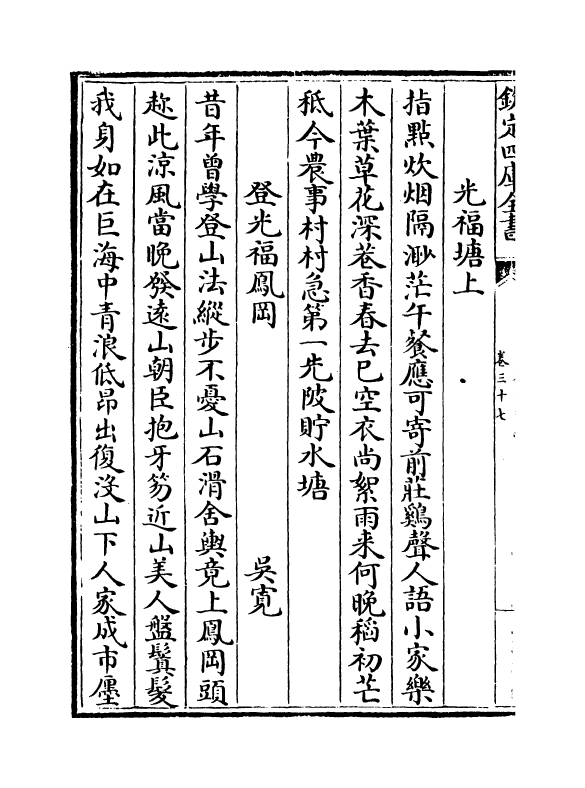 欽定四庫全書
卷三十七
光福塘上
指點炊烟隔渺茫午餐應可寄前莊鷄聲人語小家樂
木葉草花深巷香春去已空衣尚絮雨来何晚稻初芒
秪今農事村村急第一先陂貯水塘
登光福鳳岡 吳寛
昔年曾學登山法縱步不憂山石滑舍輿竟上鳳岡頭
趂此涼風當晚發遠山朝臣抱牙笏近山美人盤鬒髮
我身如在巨海中青浪低昂出復没山下人家成市廛